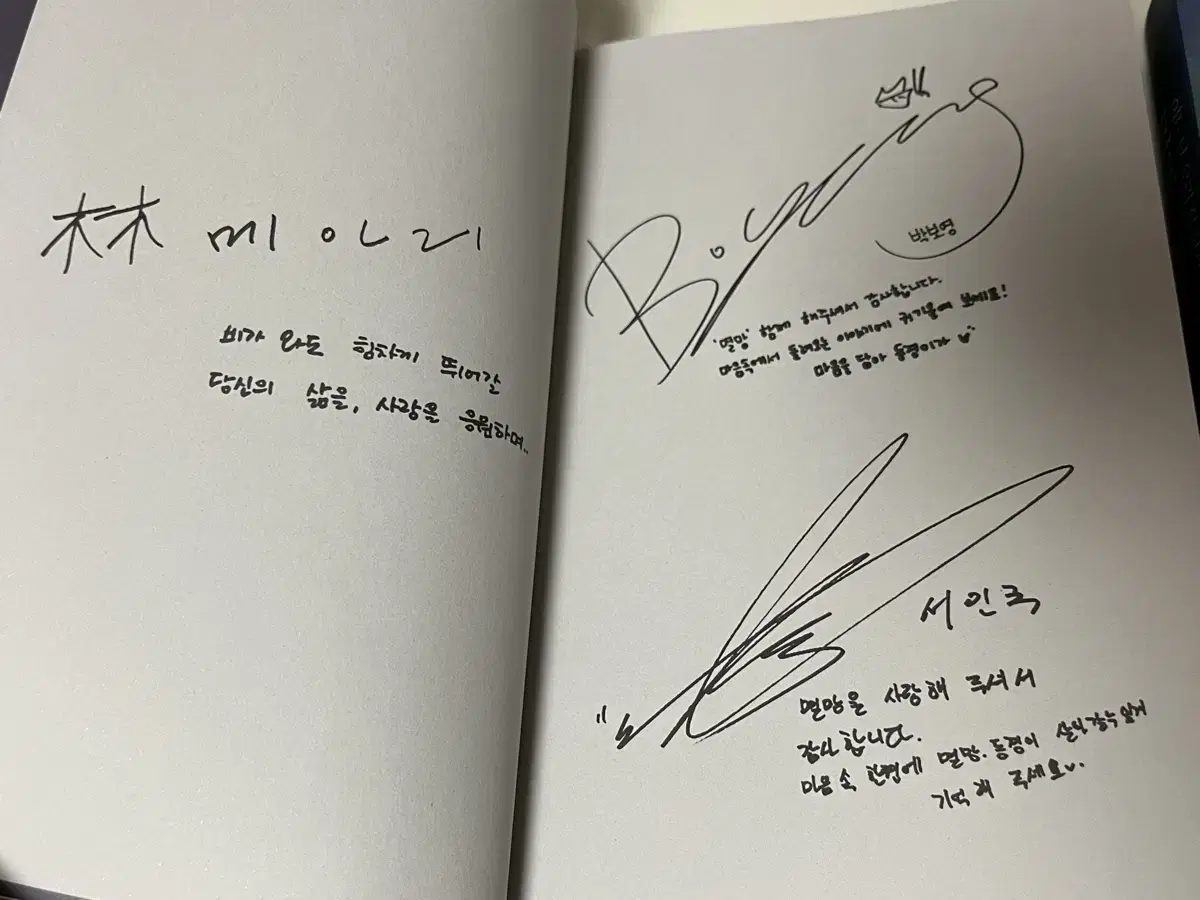 林 메아리
비가 와도 힘차게 뛰어갈
당신의 삶을, 사랑을 응원하며..
Boyoung
박보영
'멸망' 함께 해주셔서 감사합니다.
마음속에서 들려오는 이야기에 귀기울여 보세요!
마음을 담아 동경이가 ♡
서인국
멸망을 사랑해 주셔서
감사합니다.
마음 속 한켠에 멸망.동경이 살아감을 잊지
기억해 주세요♡.